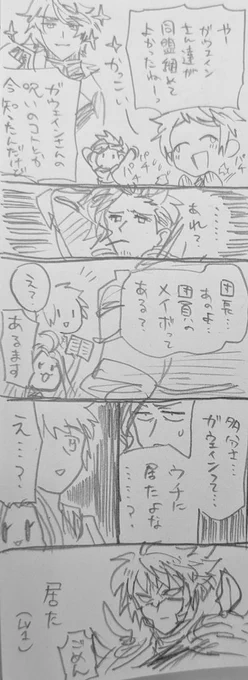 やー
ガウェイン
さん達が
同盟組んで
よかったねー。
かっこいー
ガウェインさんの
呪いのコトとか
今知ったんだけど
………
あれ？
団長…
あのよ…
団員の
メイボって
ある？
え？
あるます
多分さ…
ガウェインって…
ウチに
居たよな
……？
え…？
居た
(LV1)
ごめん